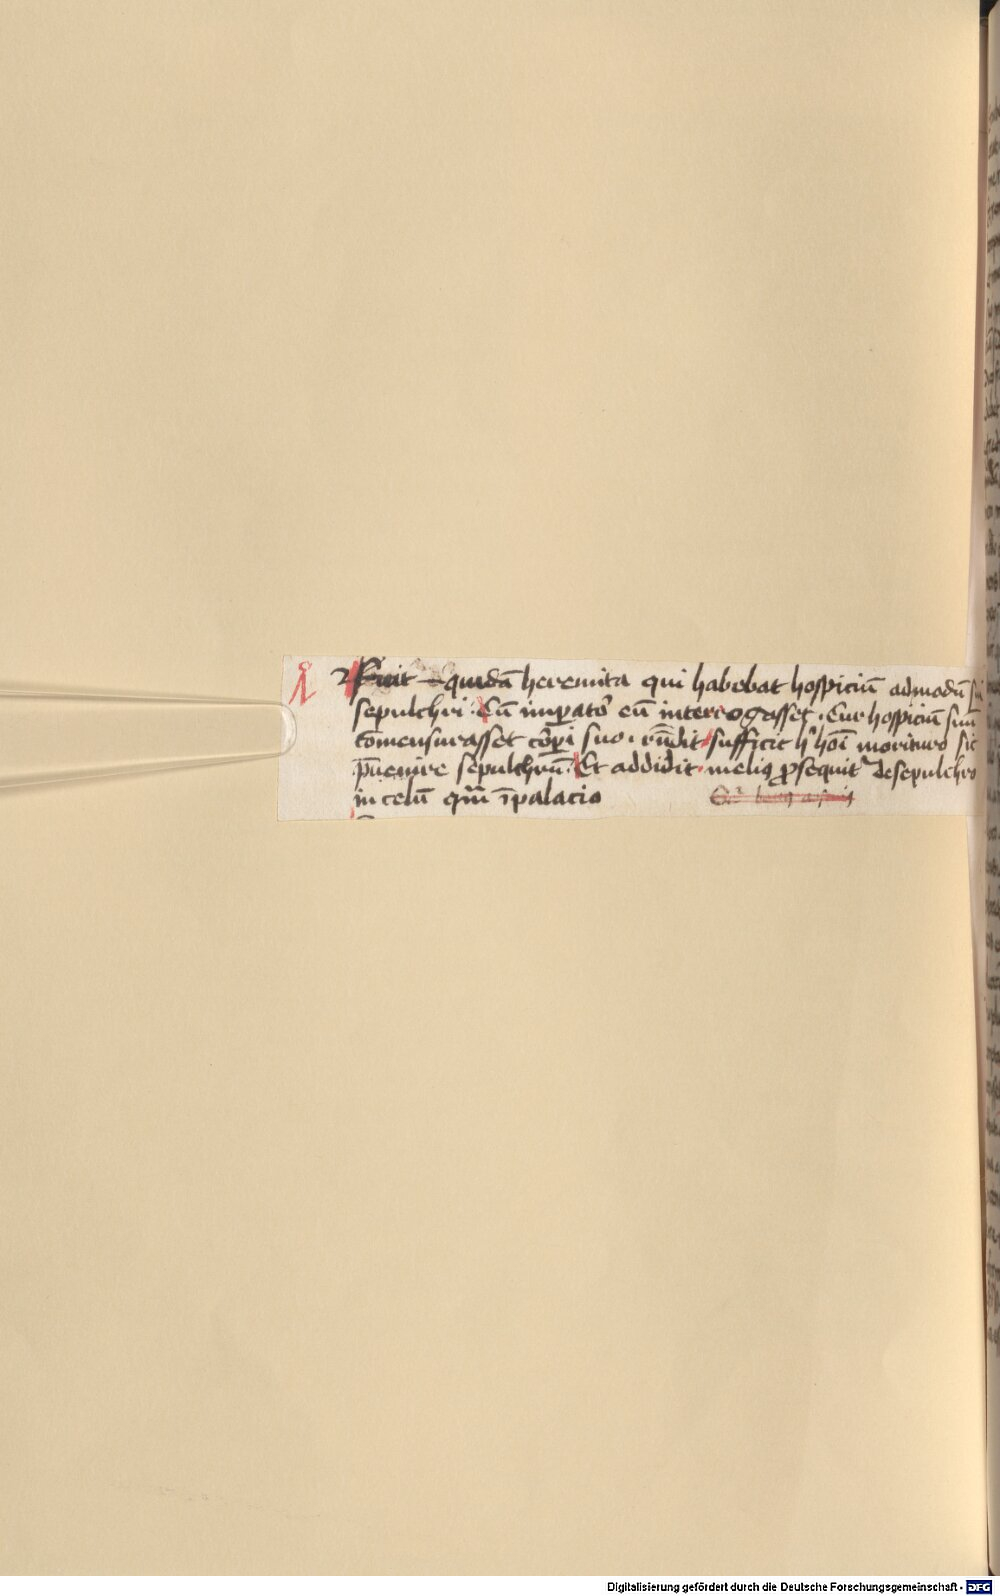 Fuit quidā heremita qui habebat hospiciū ad modū sui
sepulchri. Cū imperator eū interrogasset. Cur hospiciū suū
cōmensurasset corꝑi suo. rn̄dit sufficit hoī morituro sic
p̄uenire sepulchrū. Et addidit meliꝯ ꝓsequit᷑ de sepulchro
in celū qm̄ ī palacio
Digitalisierung gefördert durch die Deutsche Forschungsgemeinschaft - DFG